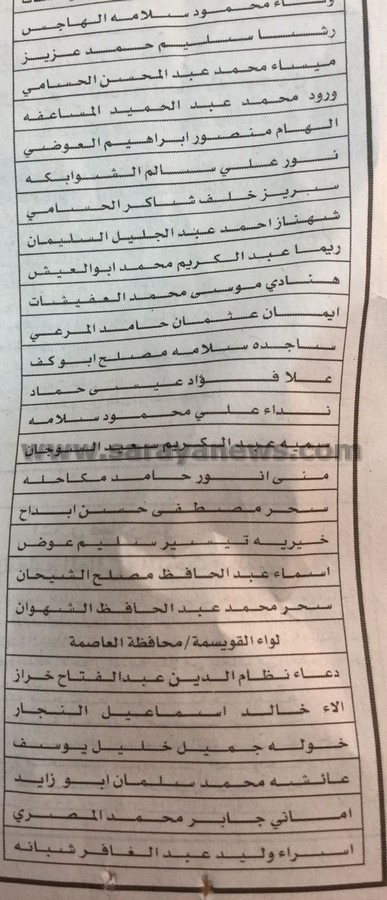 محمود سلامه الهاجس
رشا سليم حمد عزيز
ميساء محمد عبد المحسن الحسامي
ورود محمد عبد الحميد المساعفه
الهام منصور ابراهيم العوضي
نور علي سالم الشوابكه
سبريز خلف شاكر الحسامي
شهناز احمد عبد الجليل السليمان
ريما عبد الكريم محمد ابو العيش
هنادي موسى محمد العفيشات
ايمان عثمان حامد المرعي
ساجده سلامه مصلح ابو كف
علا فؤاد عيسى حماد
نداء علي محمود سلامه
سميه عبد الكريم سعيد
www.sarayanews.com
منى انور حامد مكاحله
سحر مصطفى حسن ابداح
خيريه تيسير سليم عوض
اسماء عبد الحافظ مصلح الشيحان
سحر محمد عبد الحافظ الشهوان
لواء القويسمة/محافظة العاصمة
دعاء نظام الدين عبدالفتاح خراز
الاء خالد اسماعيل النجار
خوله جميل خليل يوسف
عائشه محمد سلمان ابو زايد
اماني جابر محمد المصري
اسراء وليد عبد الغافر شبانه